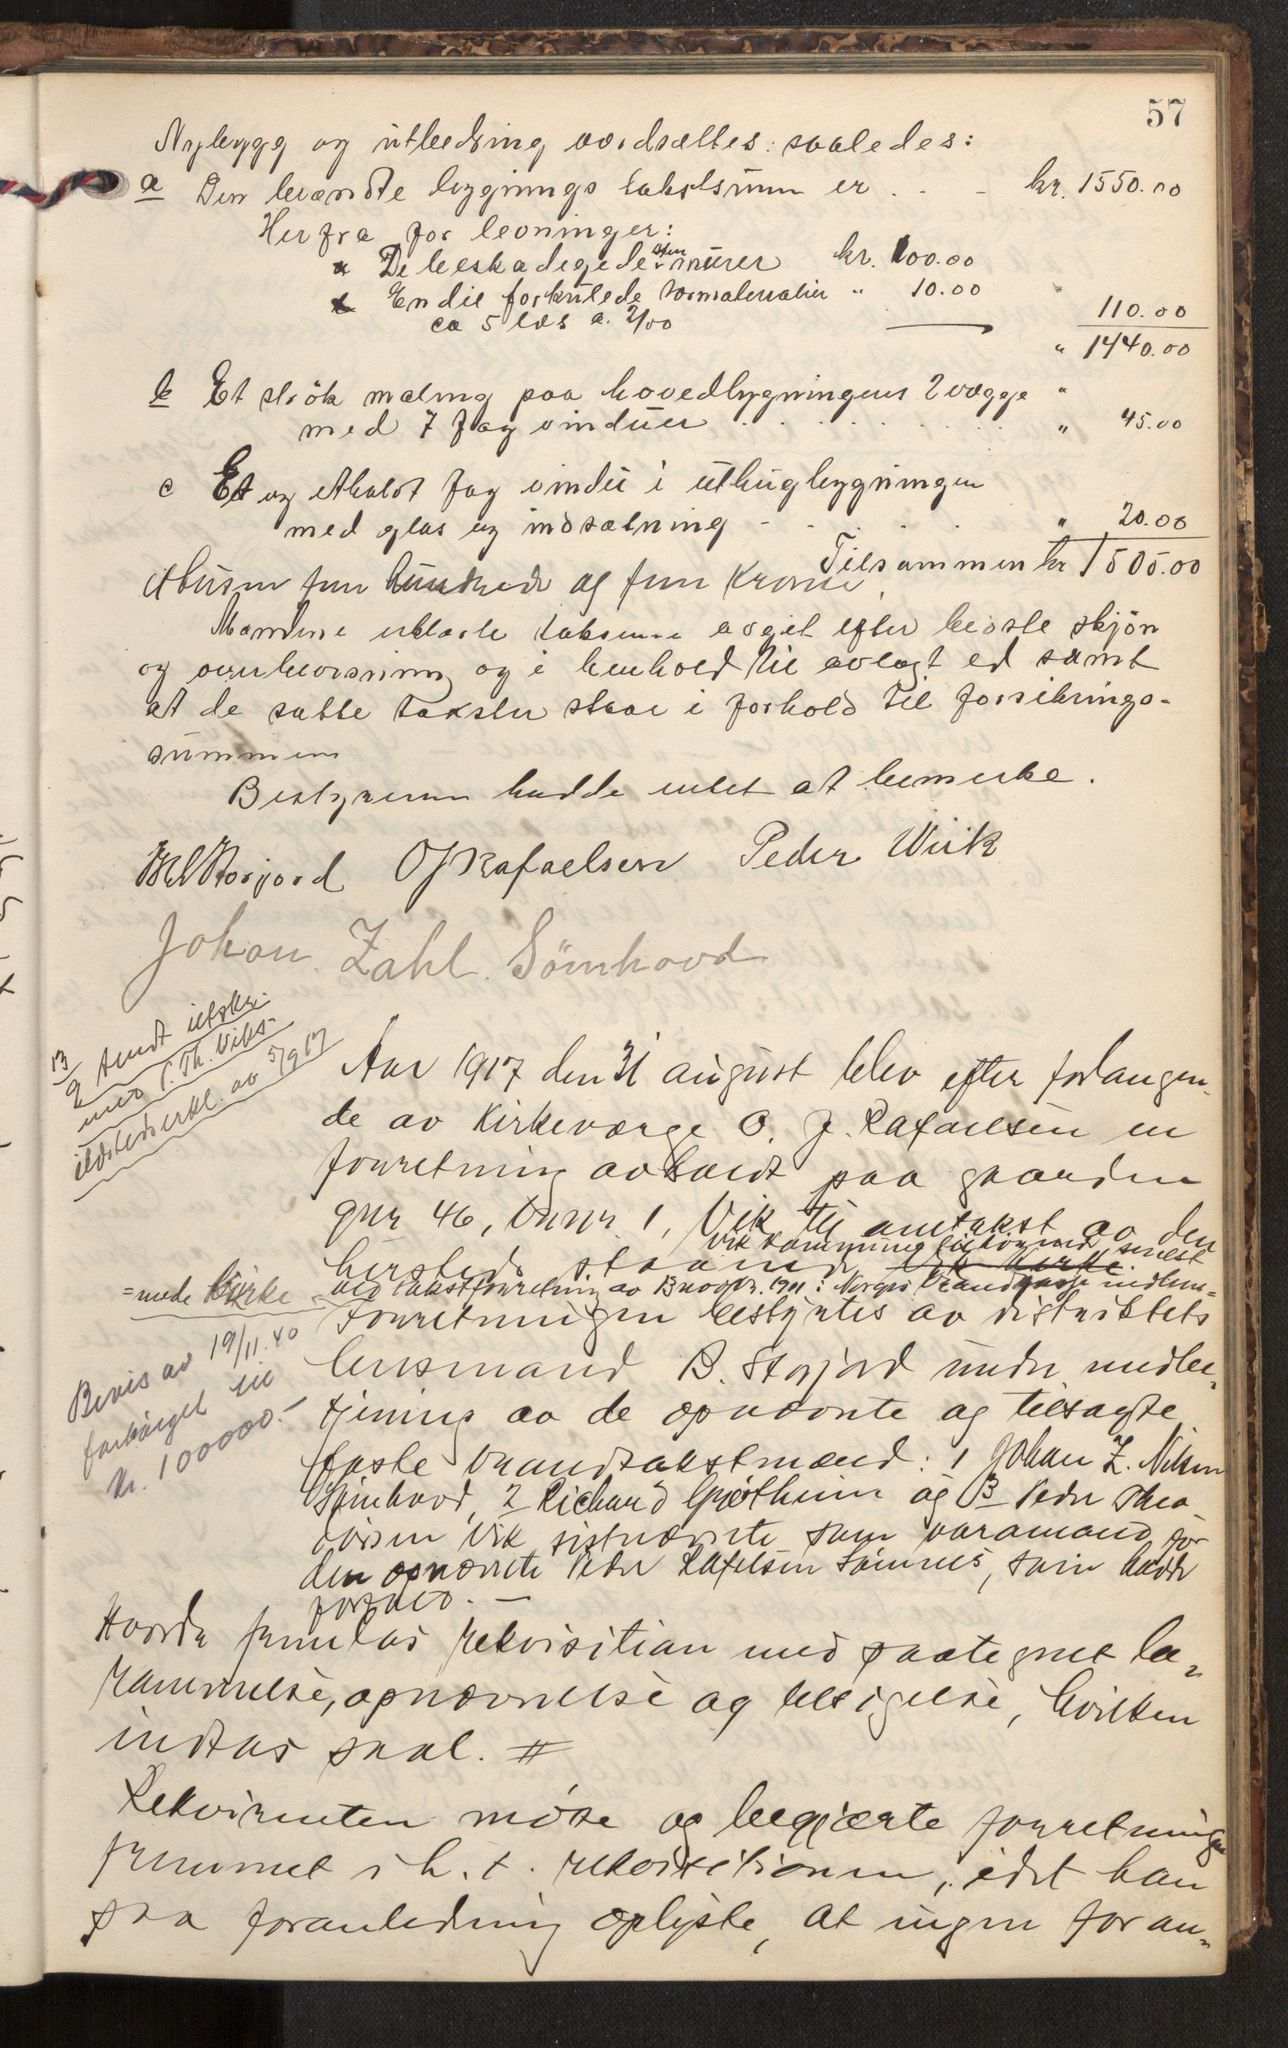 57
Nybygg og utbedring værdsættes saaledes:
a Den brændte bygnings takstsum er . . - kr. 1550.00
Her fra for levninger:
De beskadigede murer kr. 100.00
En del forkulede tømaterialier " 10.00 " 110.00
ca 5 læs a. 2/00
" 1440.00
b Et strök maling paa hovedbygningens 2 vægge "
med 7 fag vinduer . . . . . . . " 45.00
c Et og ethalvt fag vindu i uthusbygningen
med glas og indsætning - . . . . " 20.00
Tilsammen kr 1505.00
Ettusen fem hundrede og fem Kroner
Mændene erklærte taksterne avgit efter bedste skjön
og overbevisning og i henhold til avlagt ed samt
at de satte takster staar i forhold til forsikrings-
summen
Bestyreren hadde intet at bemerke.
Storjord O J Rafaelsen Peder Wiik
Johan Zahl Sömhovd
13/9 sendt utskr.
med P. Th. Viks
ildstedserkl. av 5/9 17
Aar 1917 den 31 august blev efter forlangen-
de av Kirkeværge O. J. Rafaelsen en
forretning avholdt paa gaarden
gnr 46, bnr 1, Vik til omtakst av den
hersteds staaende Vik Kirke
Vik kommune tilhörende senest
=nede Kirke ved takstforretning av 13 novbr. 1911 i Norges Brandkasse indlem=
Forretningen bestyrtes av distriktets
lensmand B. Storjord under medbe-
tjening av de opnævnte og tilsagte
faste brandtakstmænd: 1 Johan Z. Nilsen
Sömhovd, 2 Richard Grøtheim og 3 Peder Theo
dorsen Vik sistnævnte som varamand for
den opnævnte Peder Rafelsen Sömnes, som hadde
forfald. —
Bevis av 19/11.40
forhöiget til
kr. 100000.-
Hvorda fremlas rekvisition med paategnet be-
rammelse, opnævnelse og tilsigelse, hvilken
indtas saal. #
Rekvirenten møtte og begjærte forretningen
fremmet i h. t. rekvisitionen, idet han
paa foranledning oplyste, at ingen foran-